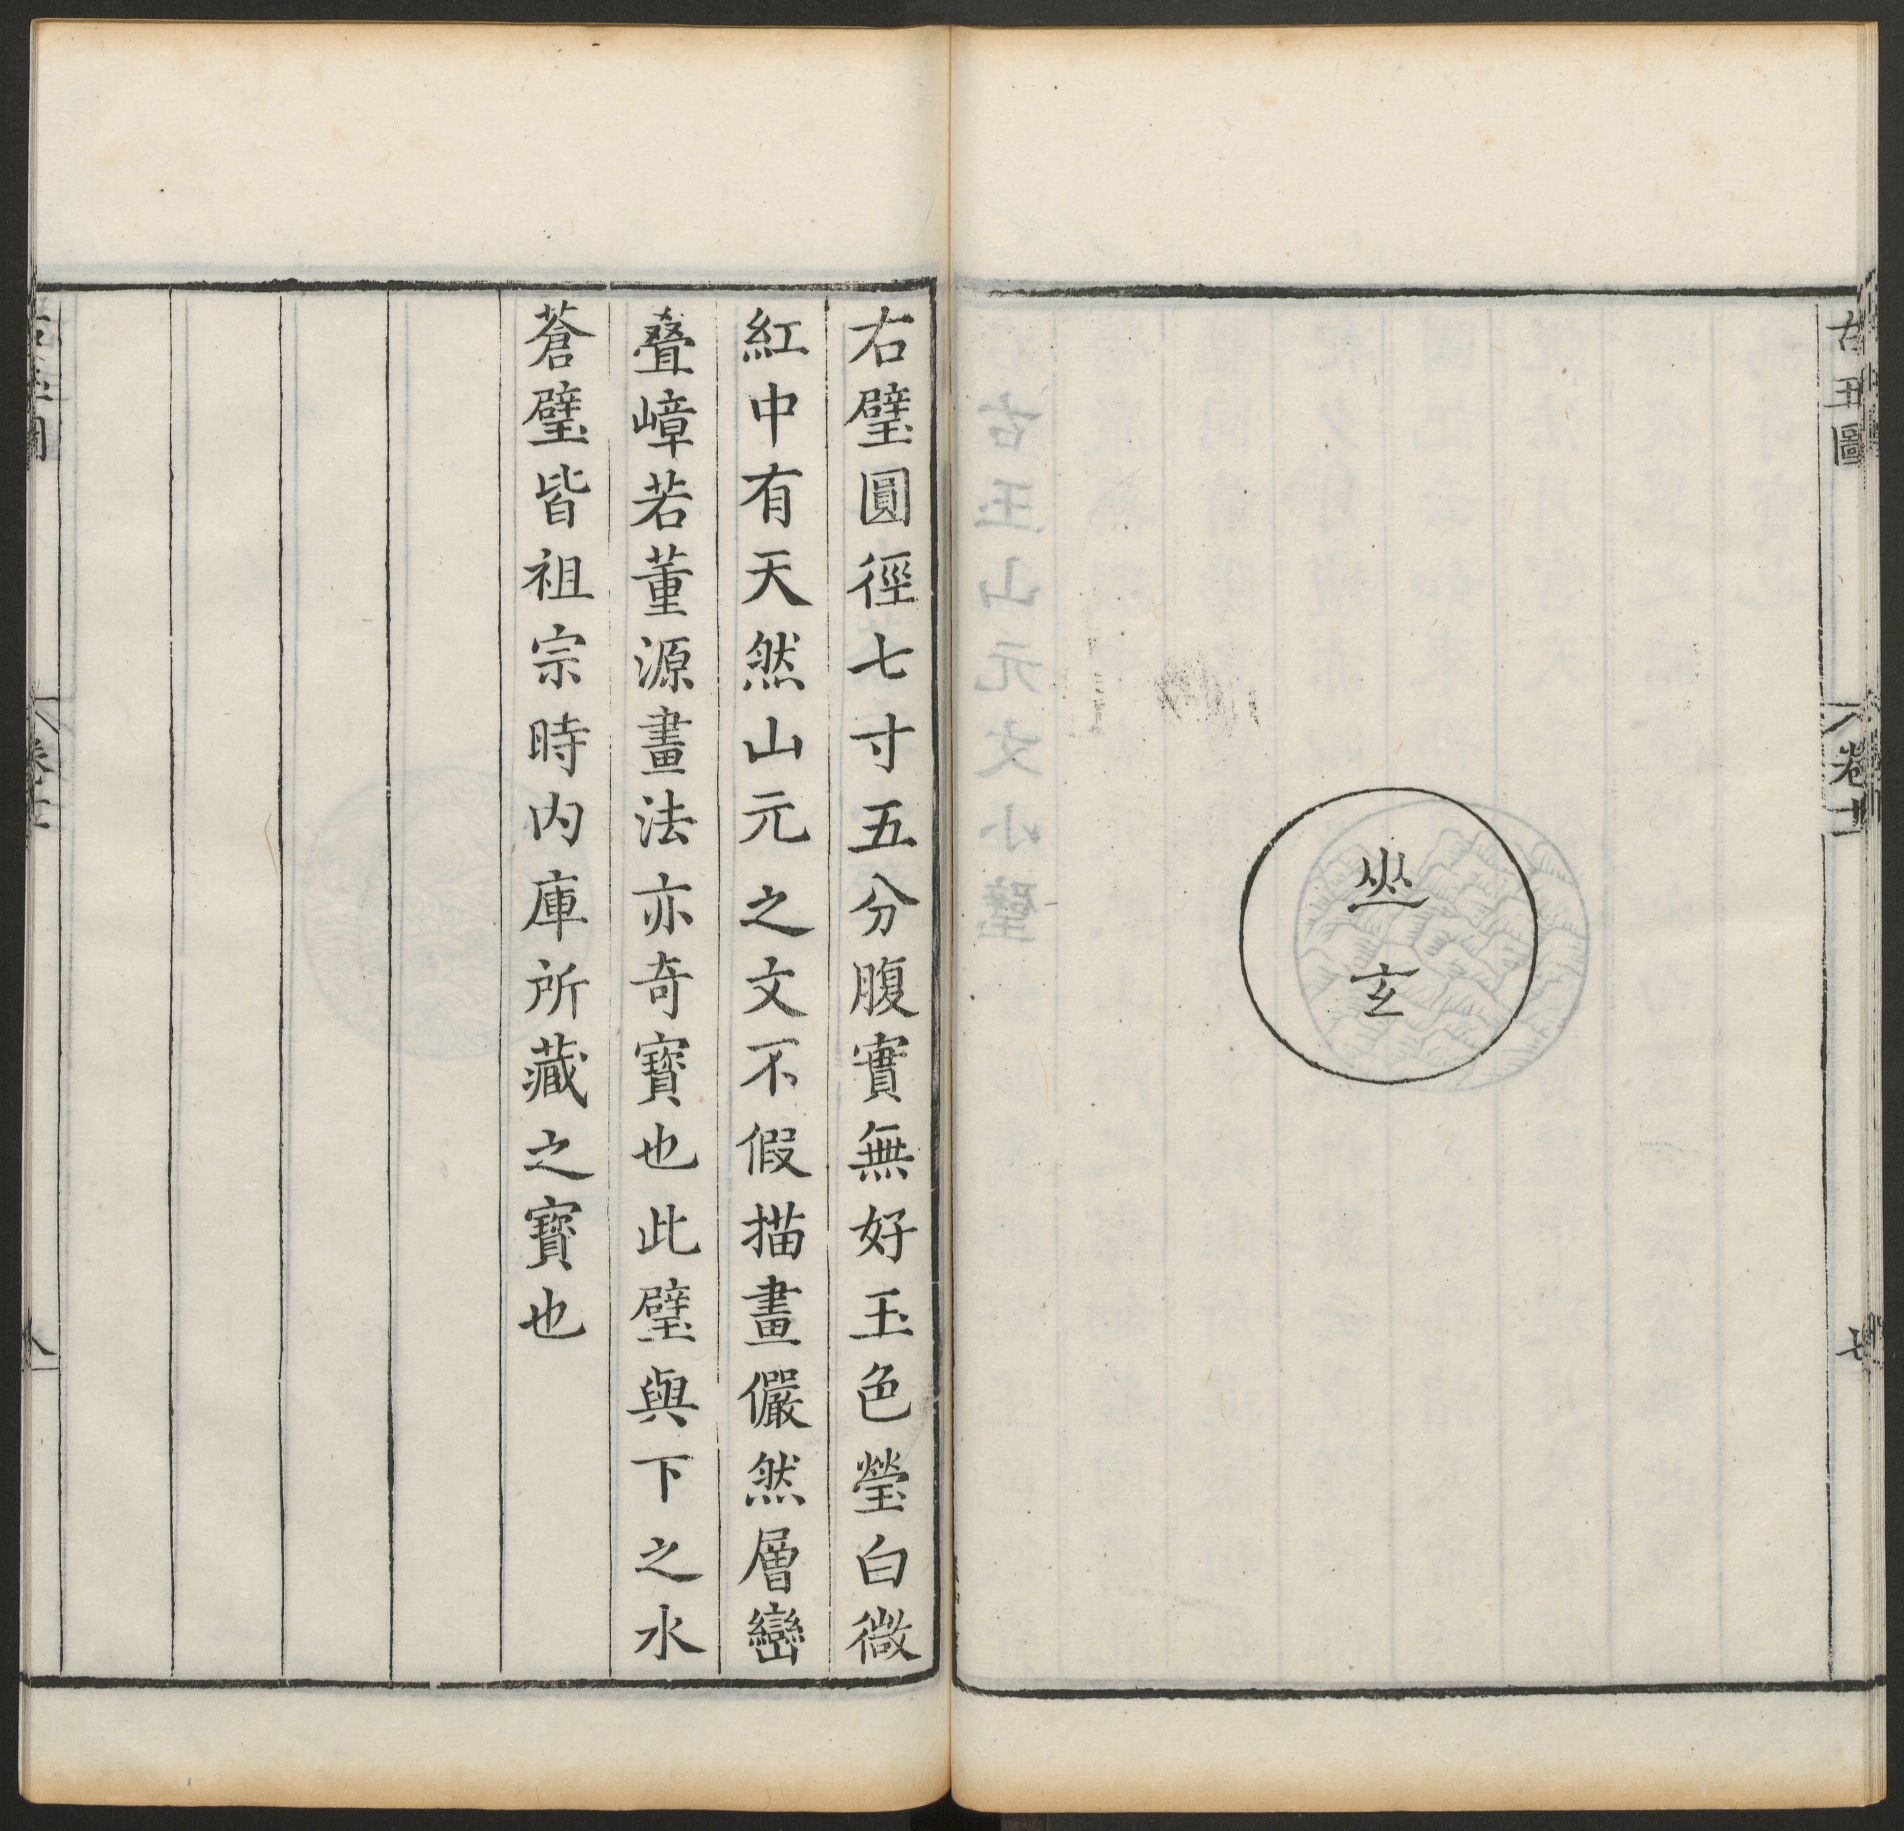 古玉圖
卷十
七
𡴞
玄
右璧圓徑七寸五分腹實無好玉色瑩白微
紅中有天然山元之文不假描畫儼然層巒
疊嶂若董源畫法亦奇寶也此璧與下之水
蒼璧皆祖宗時內庫所藏之寶也
八